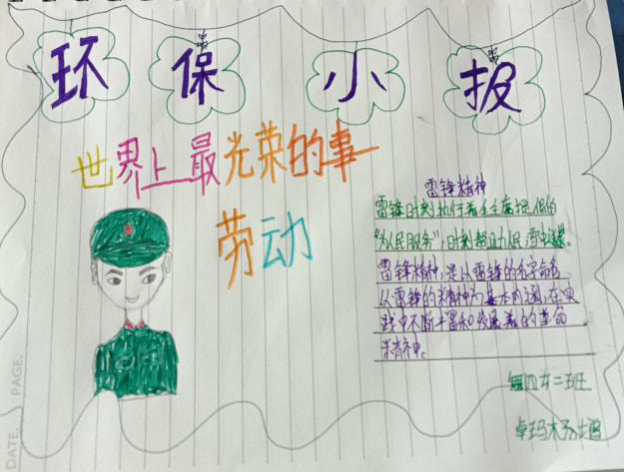 环保小报
世界上最光荣的事
劳动
雷锋精神
雷锋时刻执行着毛主席提倡的
"为人民服务",时刻帮助人民
雷锋精神,是以雷锋的名字命名
以雷锋的精神为基本内涵,在实
践中不断丰富和发展着的革命
精神。
二班
卓玛
DATE. PAGE.